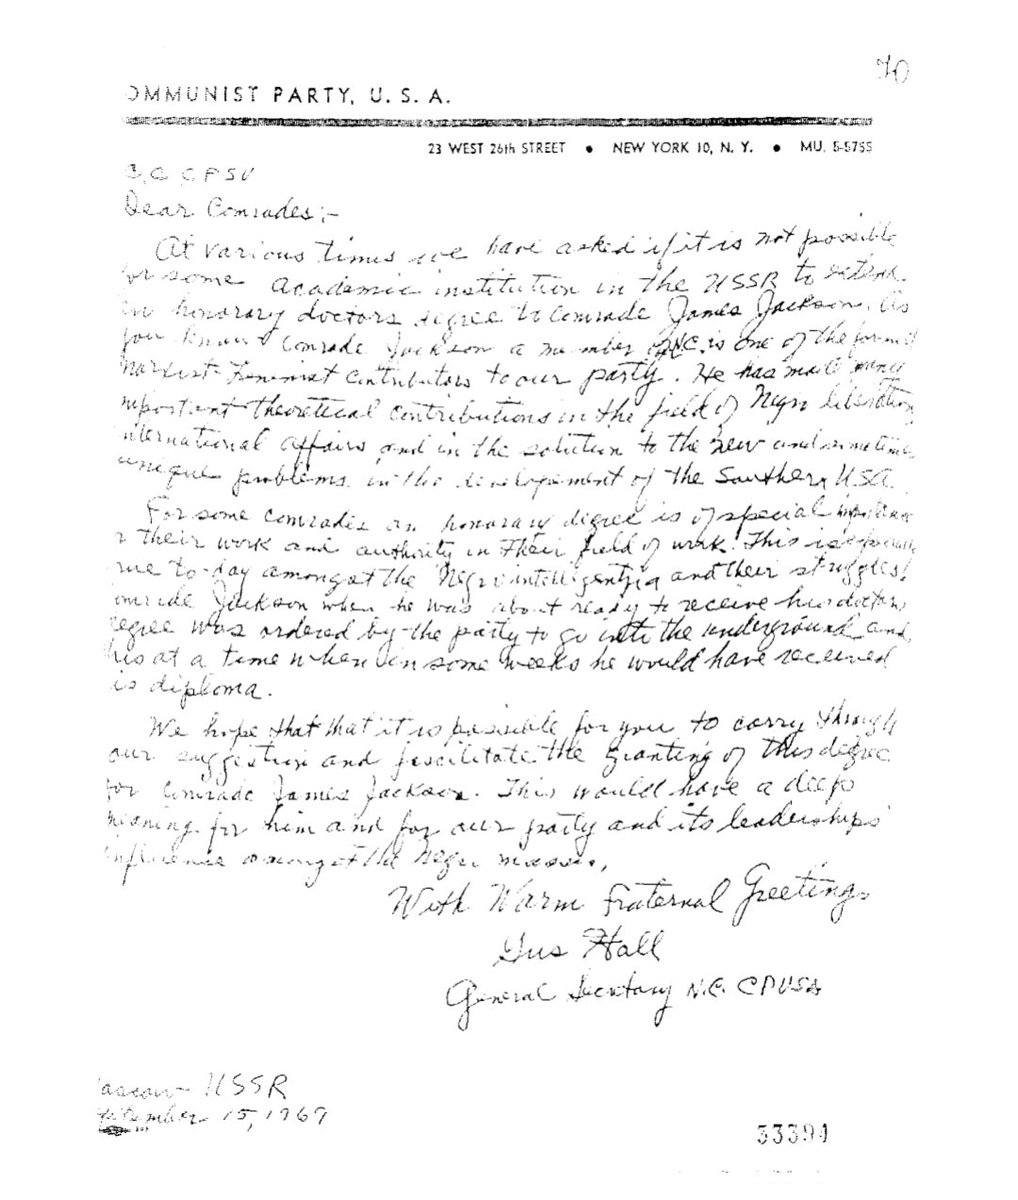 70
OMMUNIST PARTY, U. S. A.
23 WEST 26th STREET • NEW YORK 10, N. Y. • MU. 5-5755
C C P S U
Dear Comrades:-
At various times we have asked if it is not possible
for some academic institution in the USSR to extend
an honorary doctors degree to Comrade James Jackson. As
you know Comrade Jackson a member N.C. is one of the
Marxist-Leninist Contributors to our party. He has made many
mportant theoretical contributions in the field of Negro liberation
nternational affairs and in the solution to the new and sometimes
unique problems in the developement of the Southern USA.
For some comrades an honorary degree is of special importance
their work and authority in their field of work. This is especially
rue to-day amongst the Negro intelligentzia and their struggles.
omrade Jackson when he was about ready to receive his doctors
egree was ordered by the party to go into the underground and
his at a time when in some weeks he would have received
is diploma.
We hope that that it is possible for you to carry through
our suggestion and fascilitate the granting of this degree
for Comrade James Jackson. This would have a deep
meaning for him and for our party and its leaderships
influence amongst the Negro masses,
With Warm Fraternal Greetings
Gus Hall
General Secretary N.C. CPUSA
oscow - USSR
September 15, 1969
33394